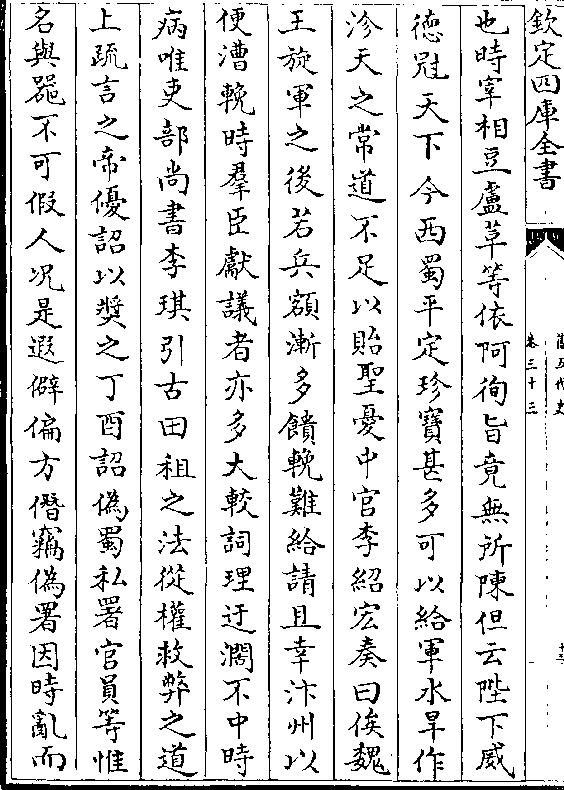 欽定四庫全書
舊五代史
卷三十三
也時宰相豆盧革等依阿徇旨竟無所陳但云陛下威
德冠天下今西蜀平定珍寶甚多可以給軍水旱作
沴天之常道不足以貽聖憂中官李紹宏奏曰俟魏
王旋軍之後若兵額漸多饋輓難給請且幸汴州以
便漕輓時羣臣獻議者亦多大較詞理迂濶不中時
病唯吏部尚書李琪引古田租之法從權救弊之道
上疏言之帝優詔以奬之丁酉詔偽蜀私署官員等惟
名與器不可假人况是遐僻偏方僭竊偽署因時亂而